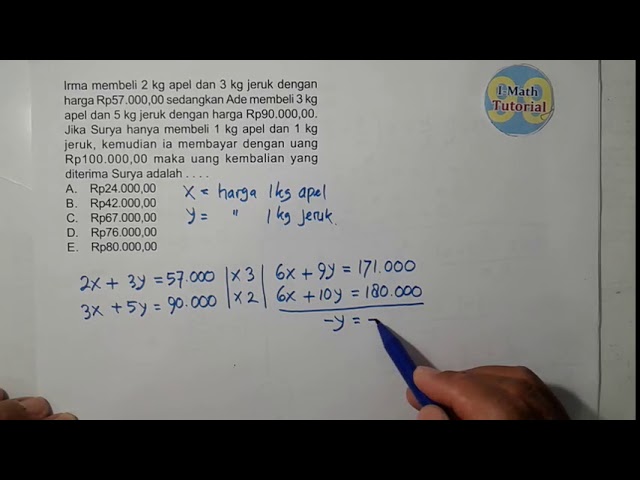 Irma membeli 2 kg apel dan 3 kg jeruk dengan
harga Rp57.000,00 sedangkan Ade membeli 3 kg
apel dan 5 kg jeruk dengan harga Rp90.000,00.
Jika Surya hanya membeli 1 kg apel dan 1 kg
jeruk, kemudian ia membayar dengan uang
Rp100.000,00 maka uang kembalian yang
diterima Surya adalah . . . .
A. Rp24.000,00
B. Rp42.000,00
C. Rp67.000,00
D. Rp76.000,00
E. Rp80.000,00
1 Math
Tutorial
x = harga 1 kg apel
y = " 1 kg jeruk.
2x + 3y = 57.000 | x 3 | 6x + 9y = 171.000
3x + 5y = 90.000 | x 2 | 6x + 10y = 180.000
-y = -